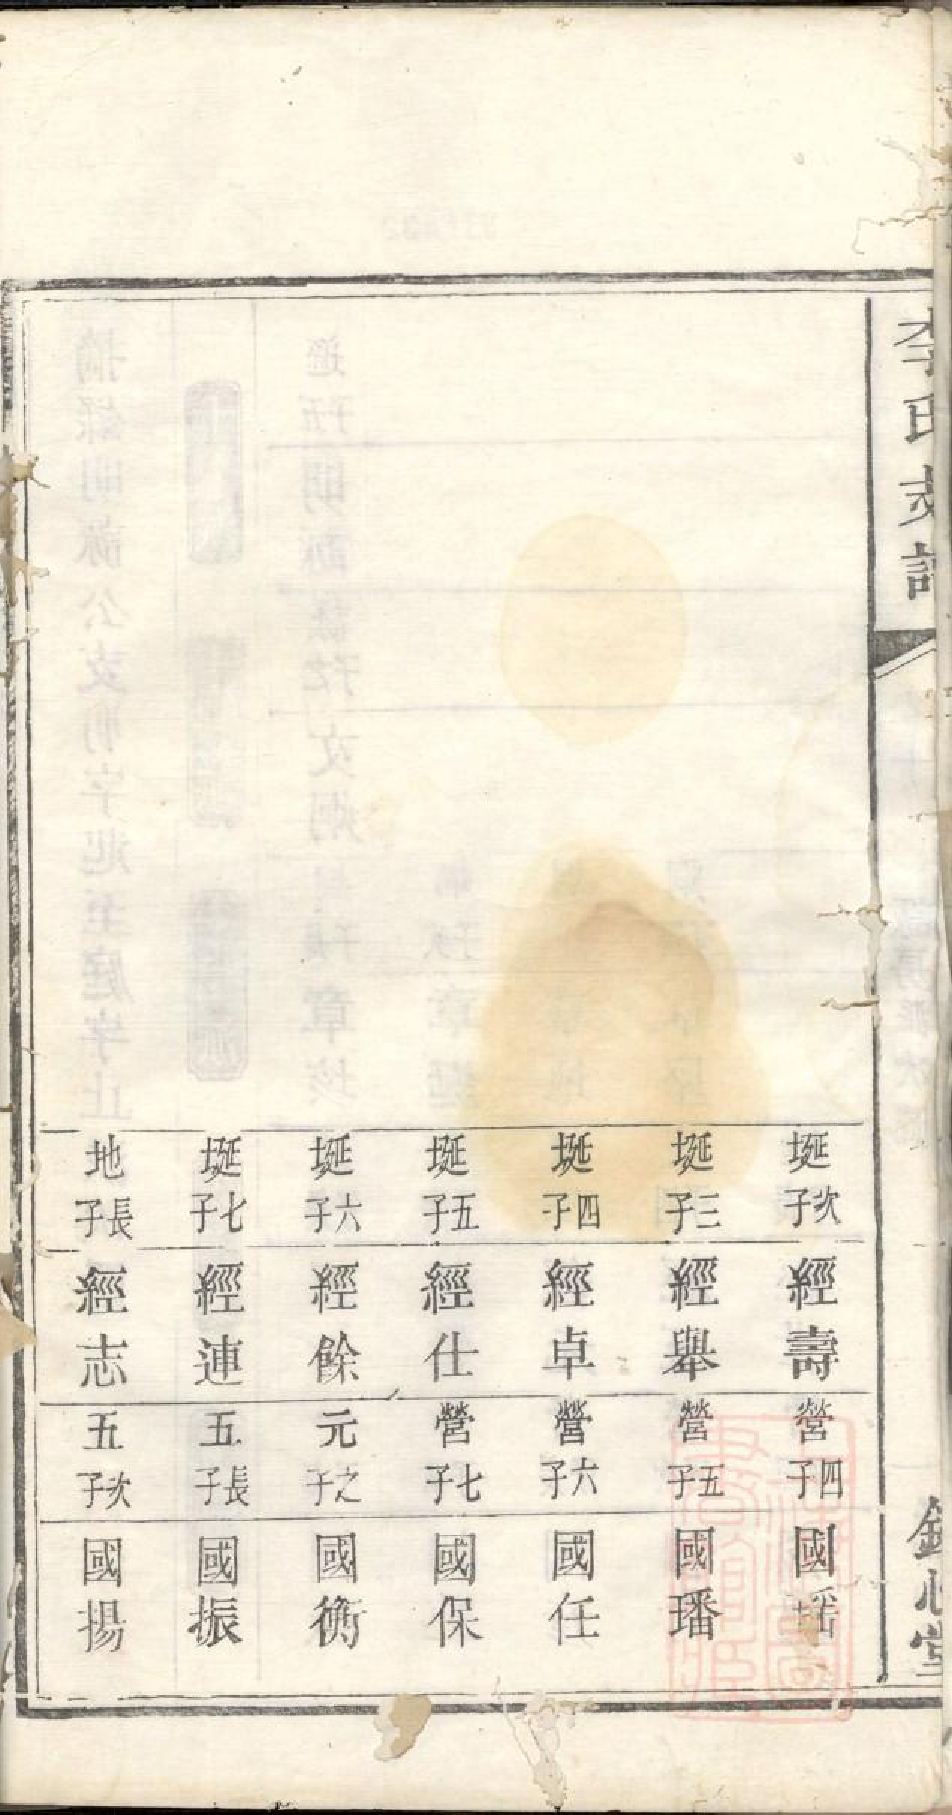 李氏支譜
埏次子
經壽
營四子
國瑤
埏三子
經舉
營五子
國璠
埏四子
經卓
營六子
國任
埏五子
經仕
營七子
國保
埏六子
經餘
元之子
國衡
埏七子
經連
五長子
國振
地長子
經志
五次子
國揚
心堂